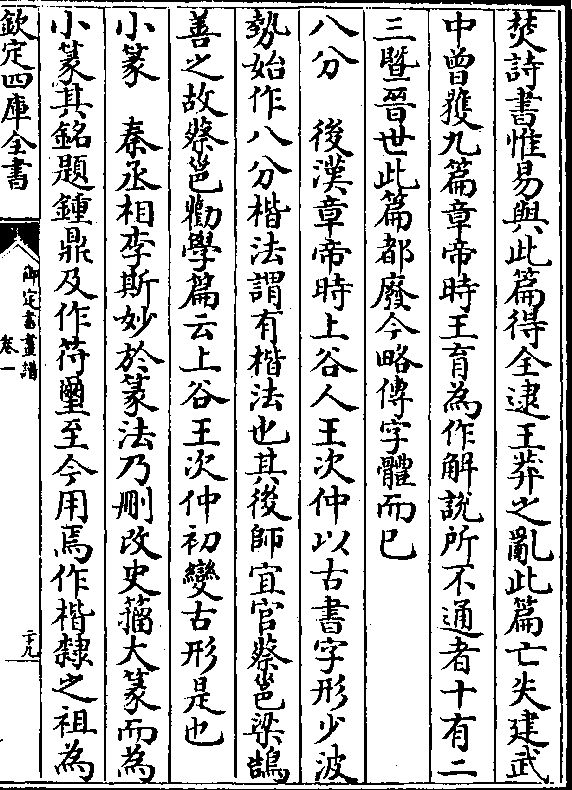 焚詩書惟易與此篇得全逮王莽之亂此篇亡失建武
中曾獲九篇章帝時王育為作解說所不通者十有二
三暨晉世此篇都廢今略傳字體而已
八分　後漢章帝時上谷人王次仲以古書字形少波
勢始作八分楷法謂有楷法也其後師宜官蔡邕梁鵠
善之故蔡邕勸學篇云上谷王次仲初變古形是也
小篆　秦丞相李斯妙於篆法乃刪改史籀大篆而為
小篆其銘題鍾鼎及作符璽至今用焉作楷隸之祖為
欽定四庫全書
御定書畫譜
卷一
二十九